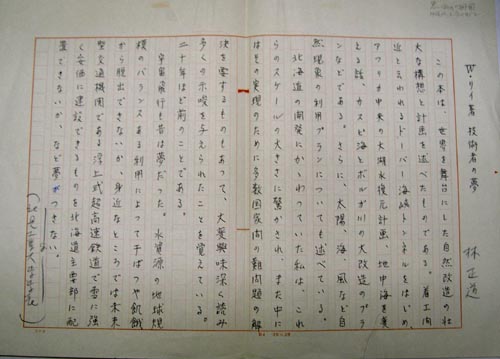 W・リイ著 技術者の夢
林 正道
この本は、世界を舞台にした自然改造の壮
大な構想と計画を述べたものである。着工間
近と云われるドーバー海峡トンネルをはじめ、
アフリカ中央の大湖水復元計画、地中海を変
える話、カスピ海とボルガ川の大改造のプラ
ンなどである。さらに、太陽、海、風など自
然現象の利用プランについても述べている。
北海道の開発にかゝわっていた私は、これ
らのスケールの大きさに驚かされ、また中に
はその実現のために多数国家間の難問題の解
決を要するものもあって、大変興味深く読み
多くの示唆を与えられたことを覚えている。
二十年ほど前のことである。
宇宙飛行も昔は夢だった。水資源の地球規
模のバランスある利用によって干ばつや飢餓
から脱出できないか、身近なところでは未来
型交通機関である浮上式超高速鉄道で雪に強
く安価に建設できるものを北海道主要部に配
置できないか、など夢がつきない。